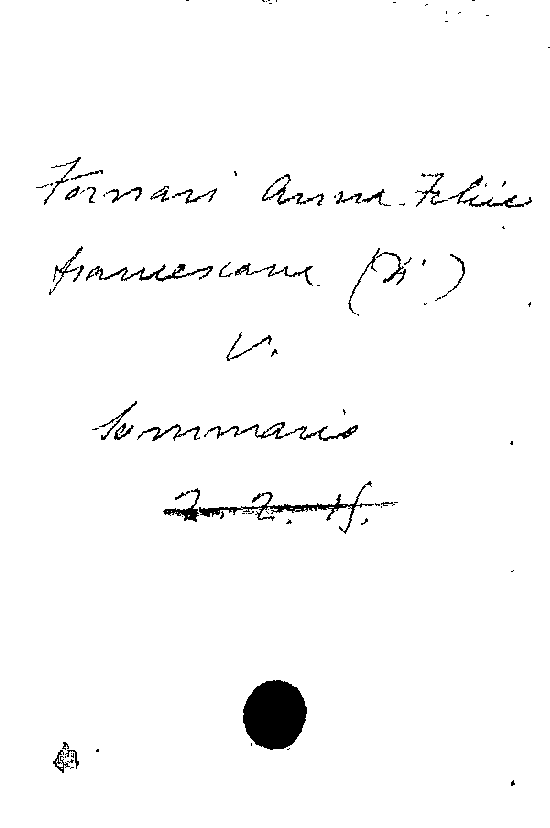 Fornari Anna Felice
francescane (Di)
V.
Sommario
2. 2. 15.